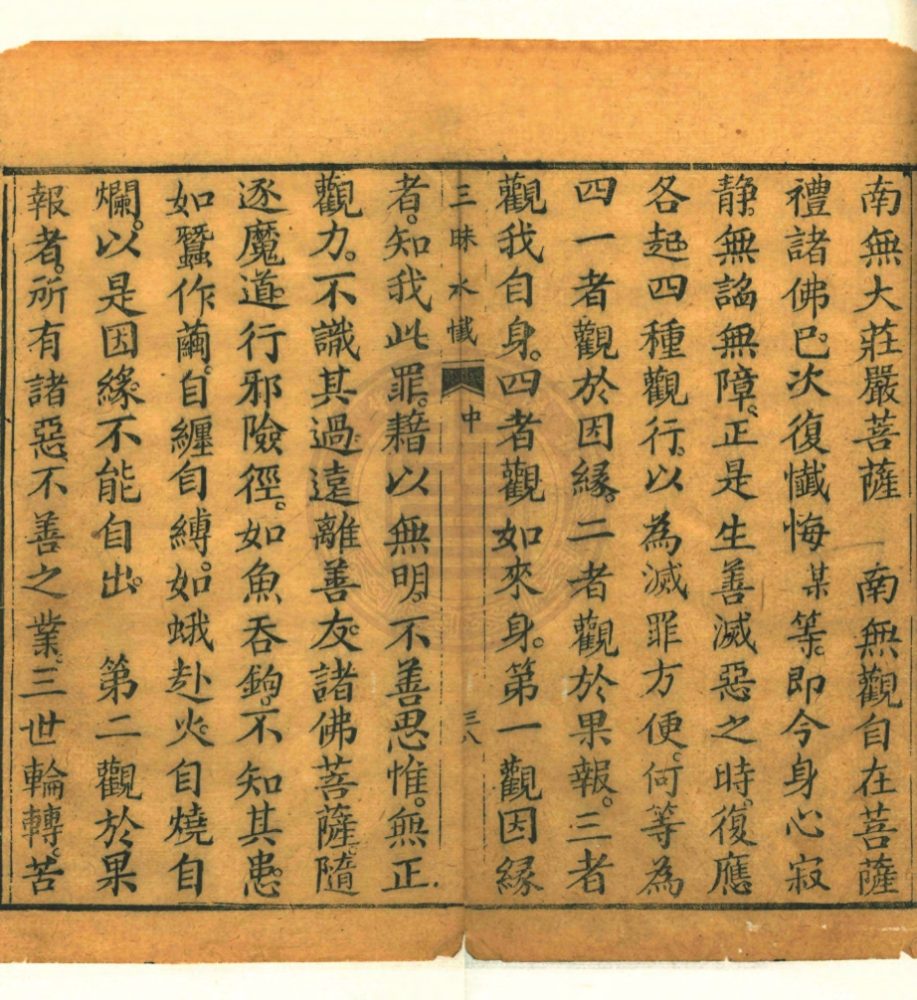 南無大莊嚴菩薩　南無觀自在菩薩
禮諸佛已。次復懺悔某等。即今身心寂
靜。無謟無障。正是生善滅惡之時。復應
各起四種觀行。以為滅罪方便。何等為
四一者觀於因緣。二者觀於果報。三者
觀我自身。四者觀如來身。第一觀因緣
三昧水懺　中　三八
者。知我此罪。藉以無明。不善思惟。無正
觀力。不識其過。遠離善友。諸佛菩薩。隨
逐魔道。行邪險徑。如魚吞鉤。不知其患。
如蠶作繭。自纏自縛。如蛾赴火。自燒自
爛。以是因緣。不能自出。　第二觀於果
報者。所有諸惡。不善之業。三世輪轉。苦